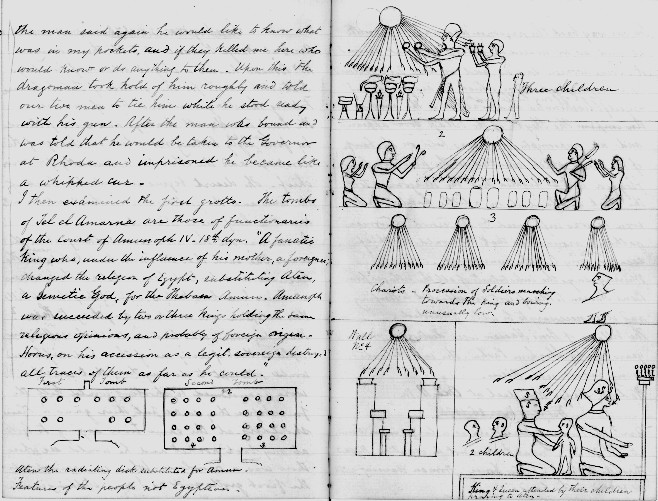 the man said again he would like to know what
was in my pockets, and if they killed me here who
would know or do anything to them. Upon this the
dragoman took hold of him roughly and told
our two men to tie him while he stood ready
with his gun. After the man was bound and
was told that he would be taken to the Governor
at Rhoda and imprisoned he became like
a whipped cur.
I then examined the first grotto. The tombs
of Tel el Amarna are those of functionaries
of the court of Amunoph IV. 18th dyn. "A fanatic
King who, under the influence of his mother, a foreigner,
changed the religion of Egypt, substituting Aten,
a Semetic God, for the Theban Amun. Amunoph
was succeeded by two or three kings holding the same
religious opinions, and probably of foreign origin.
Horus, on his accession as a legit. sovereign destroyed
all traces of them as far as he could."
First Tomb
Second Tomb
2
4
3
Aten the radiating disk substituted for Amun.
Features of the people not Egyptian.
Three children
2
3
Chariots - Procession of Soldiers marching
towards the King and bowing
unusually low.
Wall
No 4
2 children
King & Queen attended by their children